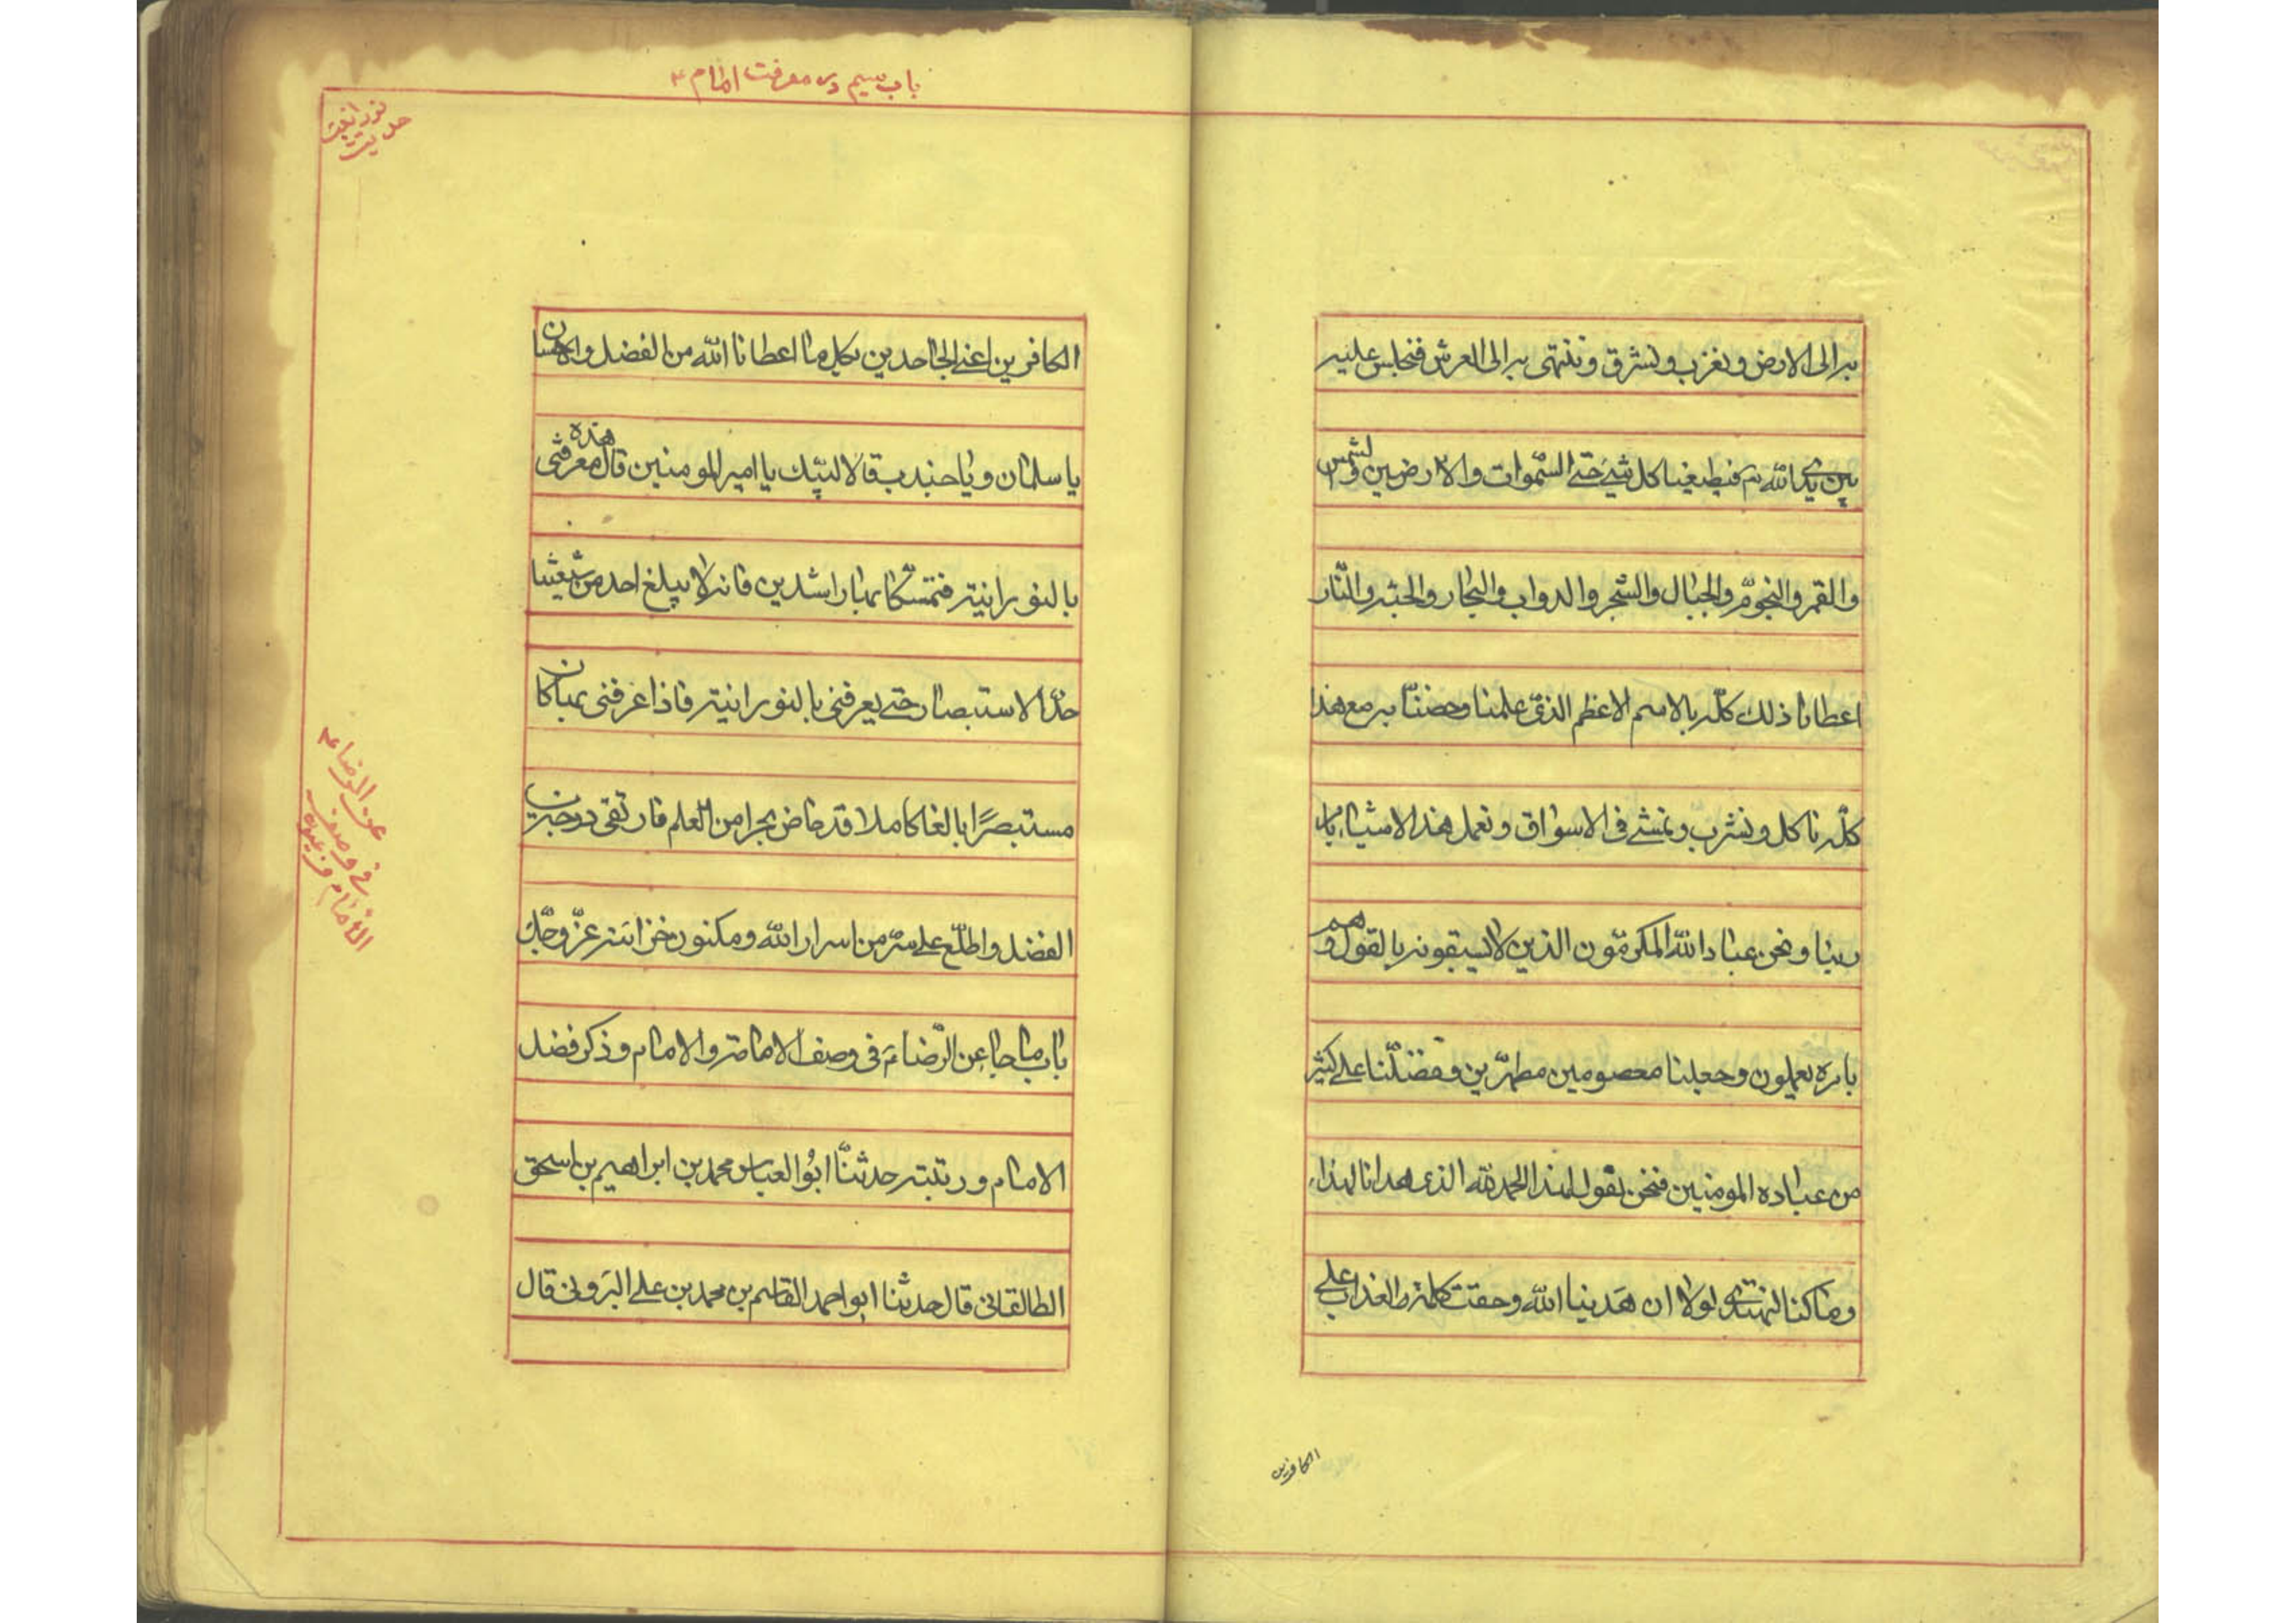 به الى الارض و نغرب و نشرق و ننتهى به الى العرش فنجلس عليه
بين يدى الله ثم فيطيعنا كل شئ حتى السموات و الارضين و الشمس
و القمر و النجوم و الجبال و الشجر و الدواب و البحار و الجنه و النار
اعطانا ذلك كله بالاسم الاعظم الذى علمنا و خصنا به مع هذا
كله ناكل و نشرب و نمشى فى الاسواق و نعمل هذه الاشياء بامر
ربنا و نحن عباد الله المكرمون الذين لا يسبقونه بالقول و هم
بامره يعملون و جعلنا معصومين مطهرين و فضلنا على كثير
من عباده المومنين فنحن نقول لهذا الحمد لله الذى هدانا لهذا
و ما كنا لنهتدى لولا ان هدينا الله و حقت كلمه العذاب على
الكافرين
باب سيم در معرفت امام ع
حديث نورانيت
الكافرين اعنى الجاحدين بكل ما اعطانا الله من الفضل و الاحسان
يا سلمان و يا جندب قالا لبيك يا امير المومنين قال هذه معرفتى
بالنورانيه فتمسكا بها راشدين فانه لا يبلغ احد من شيعتنا
حد الاستبصار حتى يعرفنى بالنورانيه فاذا عرفنى بها كان
مستبصرًا بالغا كاملا قد خاض بحرا من العلم فارتقى درجة من
الفضل و اطلع على سر من اسرار الله و مكنون خزائنه عزّ و جلّ
باب ما جاء عن الرضا ع فى وصف الامامه و الامام و ذكر فضل
الامام و رتبته حدثنا ابو العباس محمد بن ابراهيم بن اسحق
الطالقانى قال حدثنا ابو احمد القاسم بن محمد بن على الهرونى قال
عن الرضا ع
فى وصف
الامام و غيره